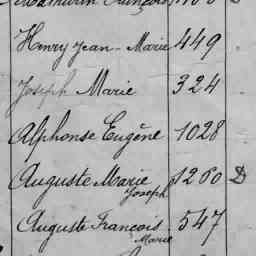 Henry Jean-Marie 449
Joseph Marie 324
Alphonse Eugène 1028
Auguste Marie Joseph 1260 D
Auguste François Marie 547